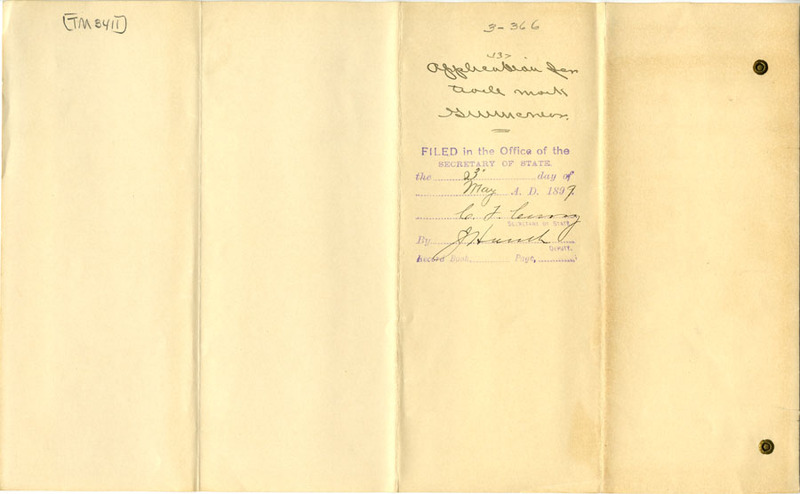 [TM 3411]
3-366
Application for
trade mark
FILED in the Office of the
SECRETARY OF STATE.
the 23 day of
May A. D. 1897.
C. F. Curry
Secretary of State.
By J. Hoesch
Deputy.
Record Book, Page,